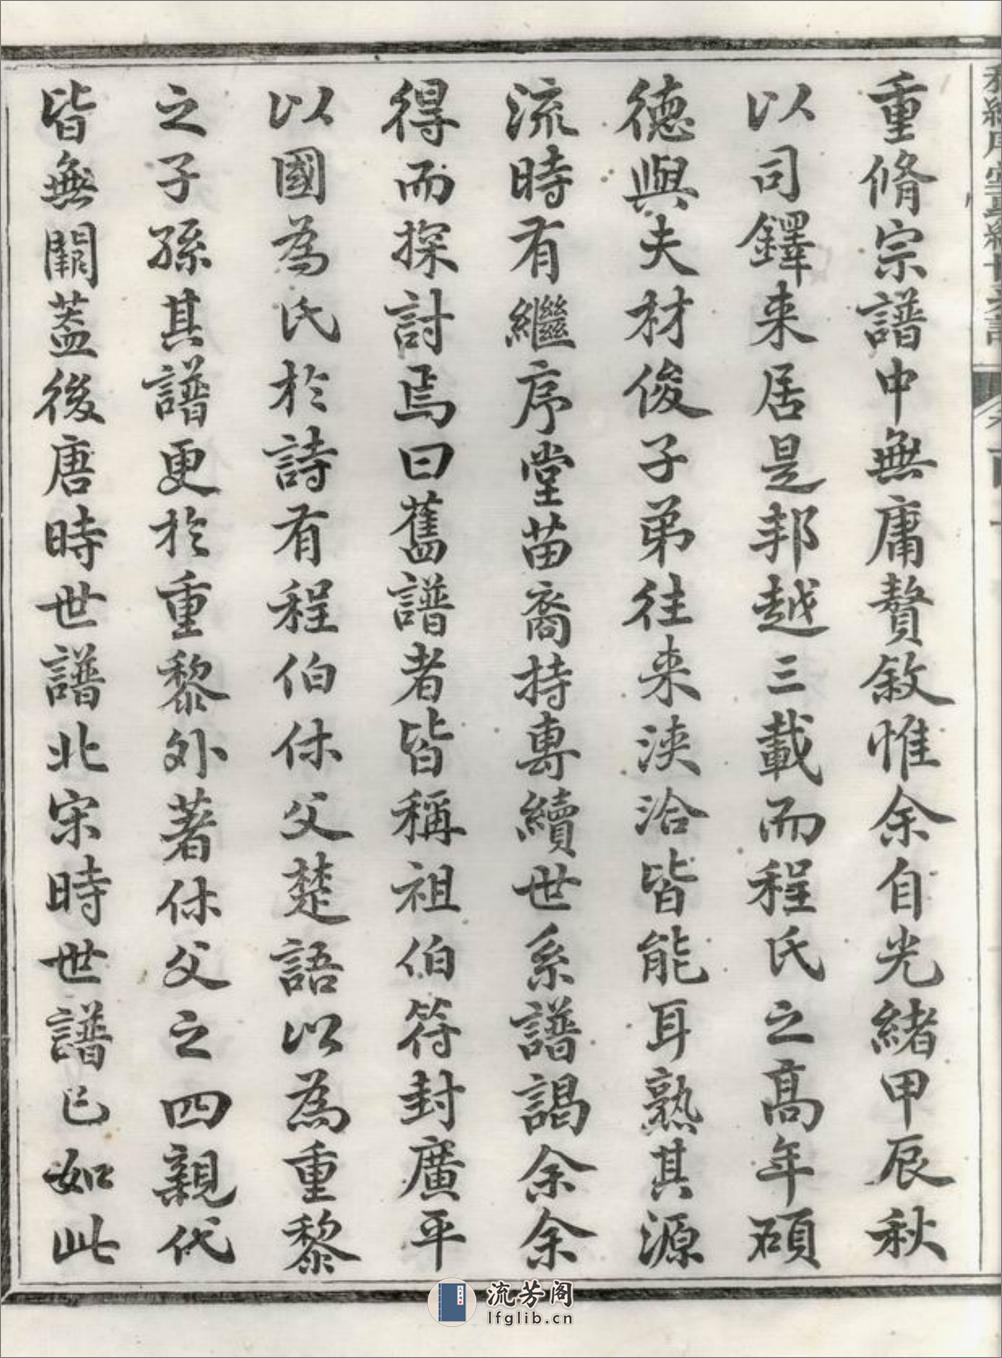 重脩宗譜中無庸贅敘惟余自光緒甲辰秋
以司鐸来居是邦越三載而程氏之高年碩
德與夫材俊子弟往来浹洽皆能耳熟其源
流時有繼序堂苗裔持專續世系譜謁余余
得而探討焉曰舊譜者皆稱祖伯符封廣平
以國為氏於詩有程伯休父楚語以為重黎
之子孫其譜更於重黎外著休父之四親代
皆無闕蓋後唐時世譜北宋時世譜已如此
流芳阁
lfglib.cn